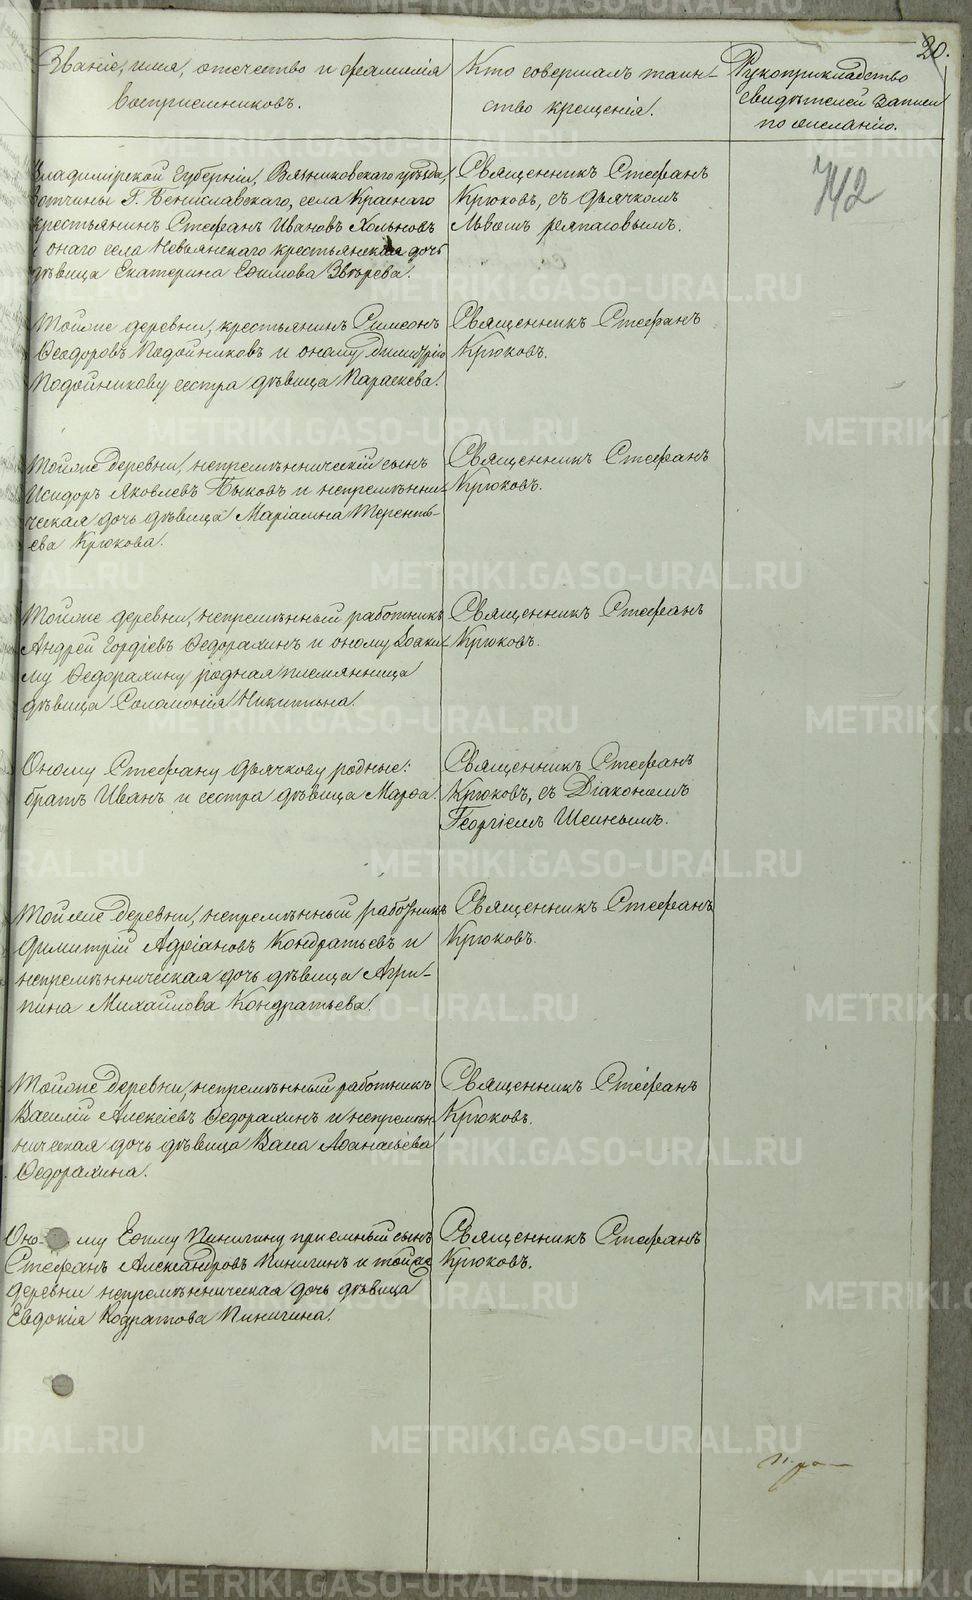 20.
Званіе, имя, отечество и фамилія
воспріемниковъ.
Кто совершалъ таин-
ство крещенія.
Рукоприкладство
свидѣтелей записи
по желанію.
Владимірской Губерніи, Вязниковскаго уѣзда,
вотчины Г. Бениславскаго, села Краснаго
крестьянинъ Стефанъ Ивановъ Хольновъ
и онаго села Невьянскаго крестьянская дочь
дѣвица Екатерина Ефимова Звѣрева.
Священникъ Стефанъ
Крюковъ, съ дьячкомъ
Львомъ
742
Тойже деревни, крестьянинъ Симеонъ
Ѳеодоровъ Подойниковъ и оному Димитрію
Подойникову сестра дѣвица Параскева.
Священникъ Стефанъ
Крюковъ.
Тойже деревни, непремѣнническій сынъ
Исидоръ Яковлевъ Быковъ и непремѣнни-
ческая дочь дѣвица Маріамна Теренть-
ева Крюкова.
Священникъ Стефанъ
Крюковъ.
Тойже деревни, непремѣнный работникъ
Андрей Гордіевъ Ѳедорахинъ и оному Іоаки-
му Ѳедорахину родная племянница
дѣвица Соломонія Никитина.
Священникъ Стефанъ
Крюковъ.
Оному Стефану Дьячкову родные:
братъ Иванъ и сестра дѣвица Марѳа.
Священникъ Стефанъ
Крюковъ, съ Діакономъ
Георгіемъ
Тойже деревни, непремѣнный работникъ
Димитрій Адріановъ Кондратьевъ и
непремѣнническая дочь дѣвица Агри-
пина Михаилова Кондратьева.
Священникъ Стефанъ
Крюковъ.
Тойже деревни, непремѣнный работникъ
Василій Алексіевъ Ѳедорахинъ и непремѣн-
ническая дочь дѣвица Васа Аѳанасьева
Ѳедорахина.
Священникъ Стефанъ
Крюковъ.
Оно- му Ефиму Пинигину пріемный сынъ
Стефанъ Александровъ Пинигинъ и тойже
деревни непремѣнническая дочь дѣвица
Евдокія Кодратова Пинигина.
Священникъ Стефанъ
Крюковъ.
METRIKI.GASO-URAL.RU